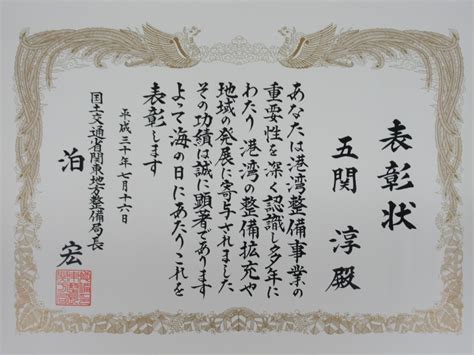 表彰状
五関 淳殿
あなたは港湾整備事業の
重要性を深く認識し多年に
わたり港湾の整備拡充や
地域の発展に寄与されました
その功績は誠に顕著であります
よって海の日にあたりこれを
表彰します
平成三十年七月十六日
国土交通省関東地方整備局長
泊 宏